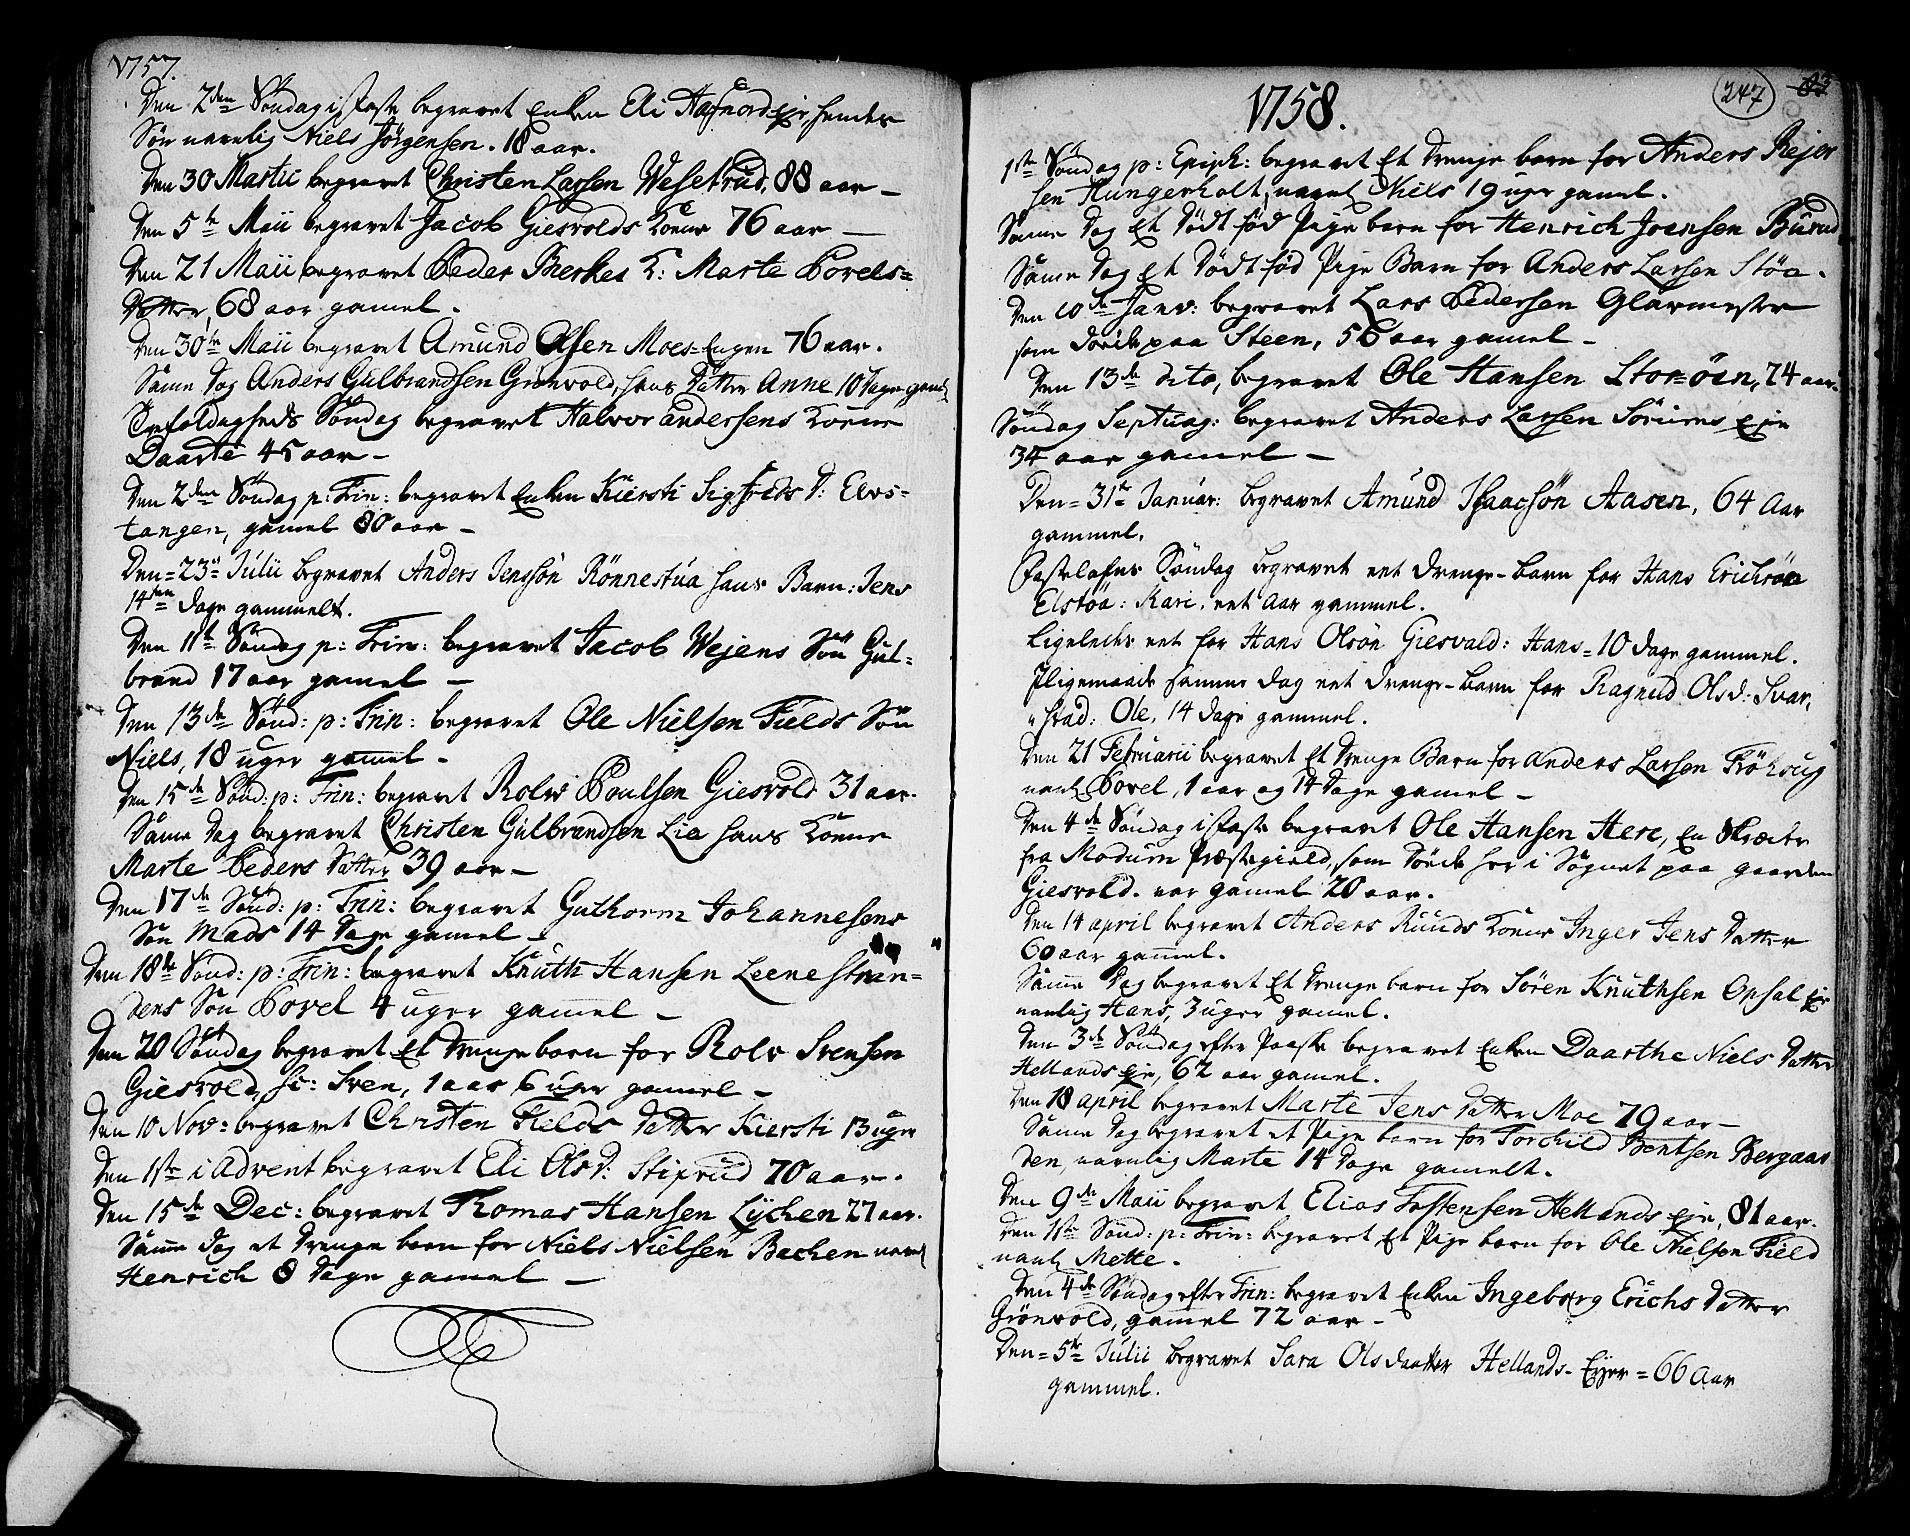 1757.
Den 2den Söndag i faste begravet Enken Eli Hafnord eje, hendes
Sön navnlig Niels Jörgensen. 18 aar.
Den 30 Martii begravet Christen Larsen Wesetrud, 88 aar –
Den 5te Maii begravet Jacob Giesvolds Koene 76 aar –
Den 21 Maii begravet Peder Berkes K: Marte Povels=
Datter, 68 aar gamel.
Den 30te Maii begravet Amund Olsen Moes-Engen 76 aar.
Same dag Anders Gulbrandsen Grönvold, hans Datter Anne 10 dage gaml
Trefoldigheds Söndag begravet Halvor Andersens Koene
Daarte 45 aar –
Den 2den Söndag p: Trin: begravet Enken Kiersti Sigfreds D: Elvs=
tangen, gamel 80 aar –
Den = 23de Julii begravet Anders Jenssön Rönnestúa hans Barn: Jens
14ten dage gammelt.
Den 11te Söndag p: Trin: begravet Jacob Wejens Sön Gul=
brand 17 aar gamel –
Den 13de Sönd: p: Trin: begravet Ole Nielsen Fields Sön
Niels, 18 uger gamel –
Den 15de Sönd: p: Trin: begravet Rolv Poulsen Giesvold 31 aar.
Same dag begravet Christen Gulbrandsen Lie hans Koene
Marte Peders Datter 39 aar –
Den 17de Sönd: p: Trin: begravet Guthorm Johannesens
Sön Mads 14 Dage gamel –
Den 18de Sönd: p: Trin: begravet Knuth Hansen Leenestran=
dens Sön Povel 4 uger gamel –
Den 20 Söndag begravet Et drengebarn for Rolv Svensen
Giesvold, sc: Sven, 1 aar 6 uger gamel –
Den 10 Nov: begravet Christen Fields Datter Kiersti 13 uger
Den 1ste i Advent begravet Eli Ols D: Stifrud 70 aar.
Den 15de Dec: begravet Thomas Hansen Lychen 27 aar.
Same dag et drenge barn for Niels Nielsen Bachen navnl
Henrich 8 dage gamel –
247
83
1758.
1ste Söndag p: Epiph: begravet Et drenge barn for Anders Rejer
sen Hungerholt, navnl Niels 19 uger gamel.
Same dag Et dödt föd Pige barn for Henrich Joensen Burud
Same dag Et dödt föd Pige Barn for Anders Larsen Stöa.
Den 10de Janv: begravet Lars Pedersen Glarmester
som döde paa Steen, 56 aar gamel –
Den 13de dito, begravet Ole Hansen Stor=öen, 74 aar.
Söndag Septuag: begravet Anders Larsen Sörums eje
34 aar gamel –
Den = 31te Januar: begravet Amund Isaacsön Aasen, 64 Aar
gammel.
Fastelafns Söndag begravet eet drenge-barn for Hans Erichsön
Elstöa: Kari, eet Aar gammel.
Ligeledes eet for Hans Olsön Giesvald: Hans = 10 dage gammel.
Iligemaade samme dag eet drenge-barn for Ragnild Olsd: Svar,
" stad: Ole, 14 dage gammel.
Den 21 Februarii begravet Et drenge Barn for Anders Larsen Fröhoug
navnl Povel, 1 aar og 14 dage gamel –
Den 4de Söndag i faste begravet Ole Hansen Here, en Skræder
fra Modum Præstegield, som döde her i Sognet paa gaarden
Giesvold. var gamel 20 aar.
Den 14 april begravet Anders Ruuds Koene Inger Jens Datter
60 aar gammel.
Same dag begravet Et drenge barn for Sören Knuthsen Opsal eje
navnlig Hans, 3 uger gamel.
Den 3de Söndag efter Paaske begravet Enken Daarthe Niels Datter
Hellands eje, 62 aar gamel.
Den 18 april begravet Marte Jens Datter Moe 79 aar –
Same dag begravet et Pige barn for Torchild Bentsen Bergaas
den, navnlig Marte 14 dage gamelt.
Den 9de Maii begravet Elias Tostensen Hellands eje, 81 aar.
Den 1ste Sönd: p: Trin: begravet Et Pige barn for Ole Nielsen Field
navnl Mette.
Den 4de Söndag efter Trin: begravet Enken Ingeborg Erichs Datter
Grönvold, gamel 72 aar –
Den = 5te Julii begravet Sara Olsdaatter Hellands-Eyer = 66 Aar
gammel.